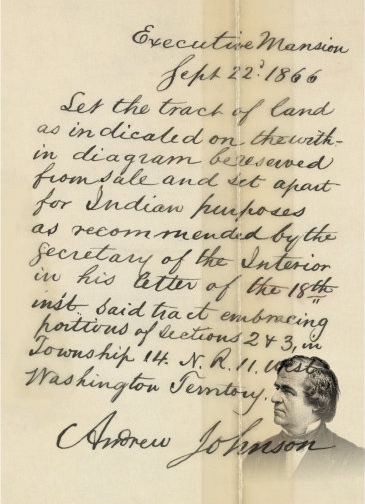 Executive Mansion
Sept 22d 1866
Let the tract of land
as indicated on the with-
in diagram be reserved
from sale and set apart
for Indian purposes
as recommended by the
Secretary of the Interior
in his letter of the 18th
inst. said tract embracing
portions of Sections 2 & 3, in
Township 14. N. R. 11. West
Washington Territory.
Andrew Johnson